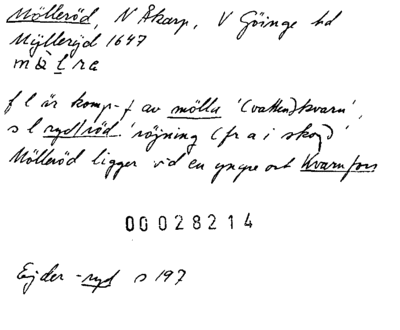 Mölleröd, N Åkarp, V Göinge hd
Mÿlleryd 1647
f l är komp-f av mölla '(vatten)kvarn',
s l ryd/röd 'röjning (fr a i skog)'
Mölleröd ligger vid en yngre ort Kvarnfors
00028214
Ejder -ryd s 197